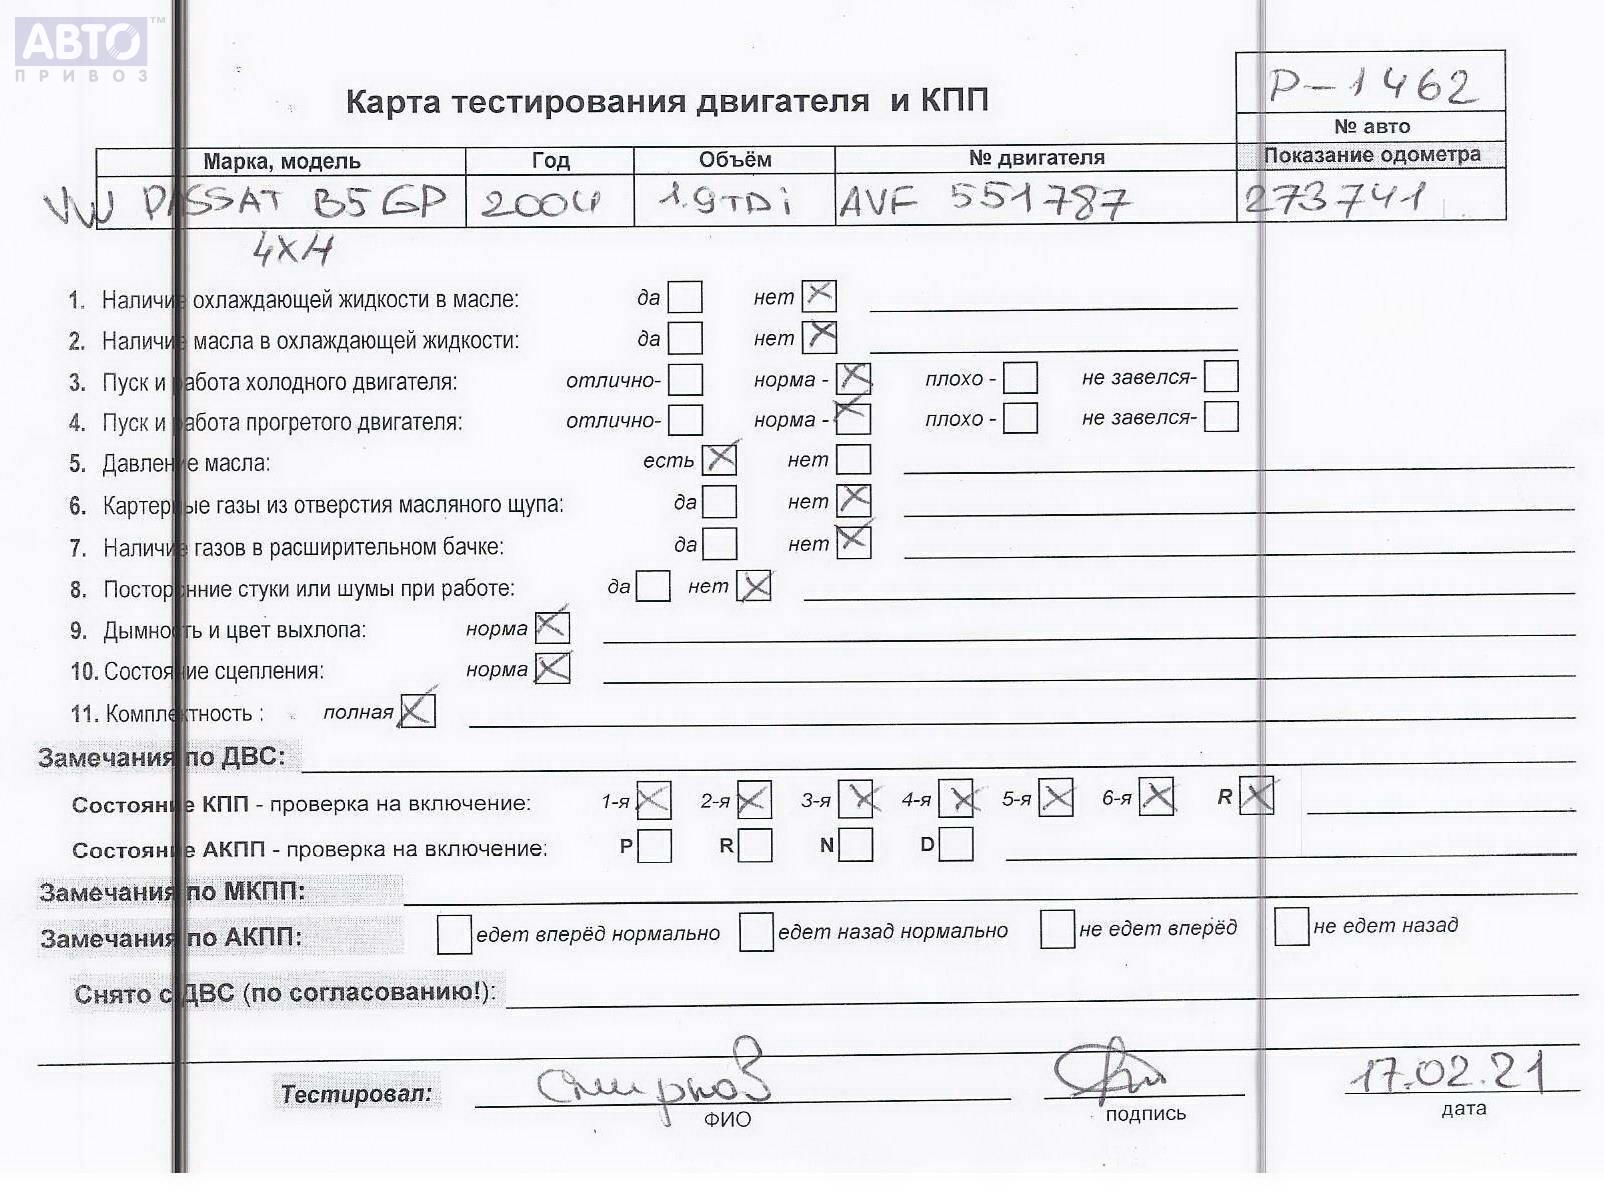 АВТО™
ПРИВОЗ
Р-1462
Карта тестирования двигателя и КПП
№ авто
Марка, модель Год Объём № двигателя Показание одометра
VW PASSAT B5 GP 2004 1.9TDi AVF 551787 273741
4X4
1. Наличие охлаждающей жидкости в масле: да нет
2. Наличие масла в охлаждающей жидкости: да нет
3. Пуск и работа холодного двигателя: отлично- норма - плохо - не завелся-
4. Пуск и работа прогретого двигателя: отлично- норма - плохо - не завелся-
5. Давление масла: есть нет
6. Картерные газы из отверстия масляного щупа: да нет
7. Наличие газов в расширительном бачке: да нет
8. Посторонние стуки или шумы при работе: да нет
9. Дымность и цвет выхлопа: норма
10. Состояние сцепления: норма
11. Комплектность : полная
Замечания по ДВС:
Состояние КПП - проверка на включение: 1-я 2-я 3-я 4-я 5-я 6-я R
Состояние АКПП - проверка на включение: P R N D
Замечания по МКПП:
Замечания по АКПП: едет вперёд нормально едет назад нормально не едет вперёд не едет назад
Снято с ДВС (по согласованию!):
Тестировал: Смирнов 17.02.21
ФИО подпись дата